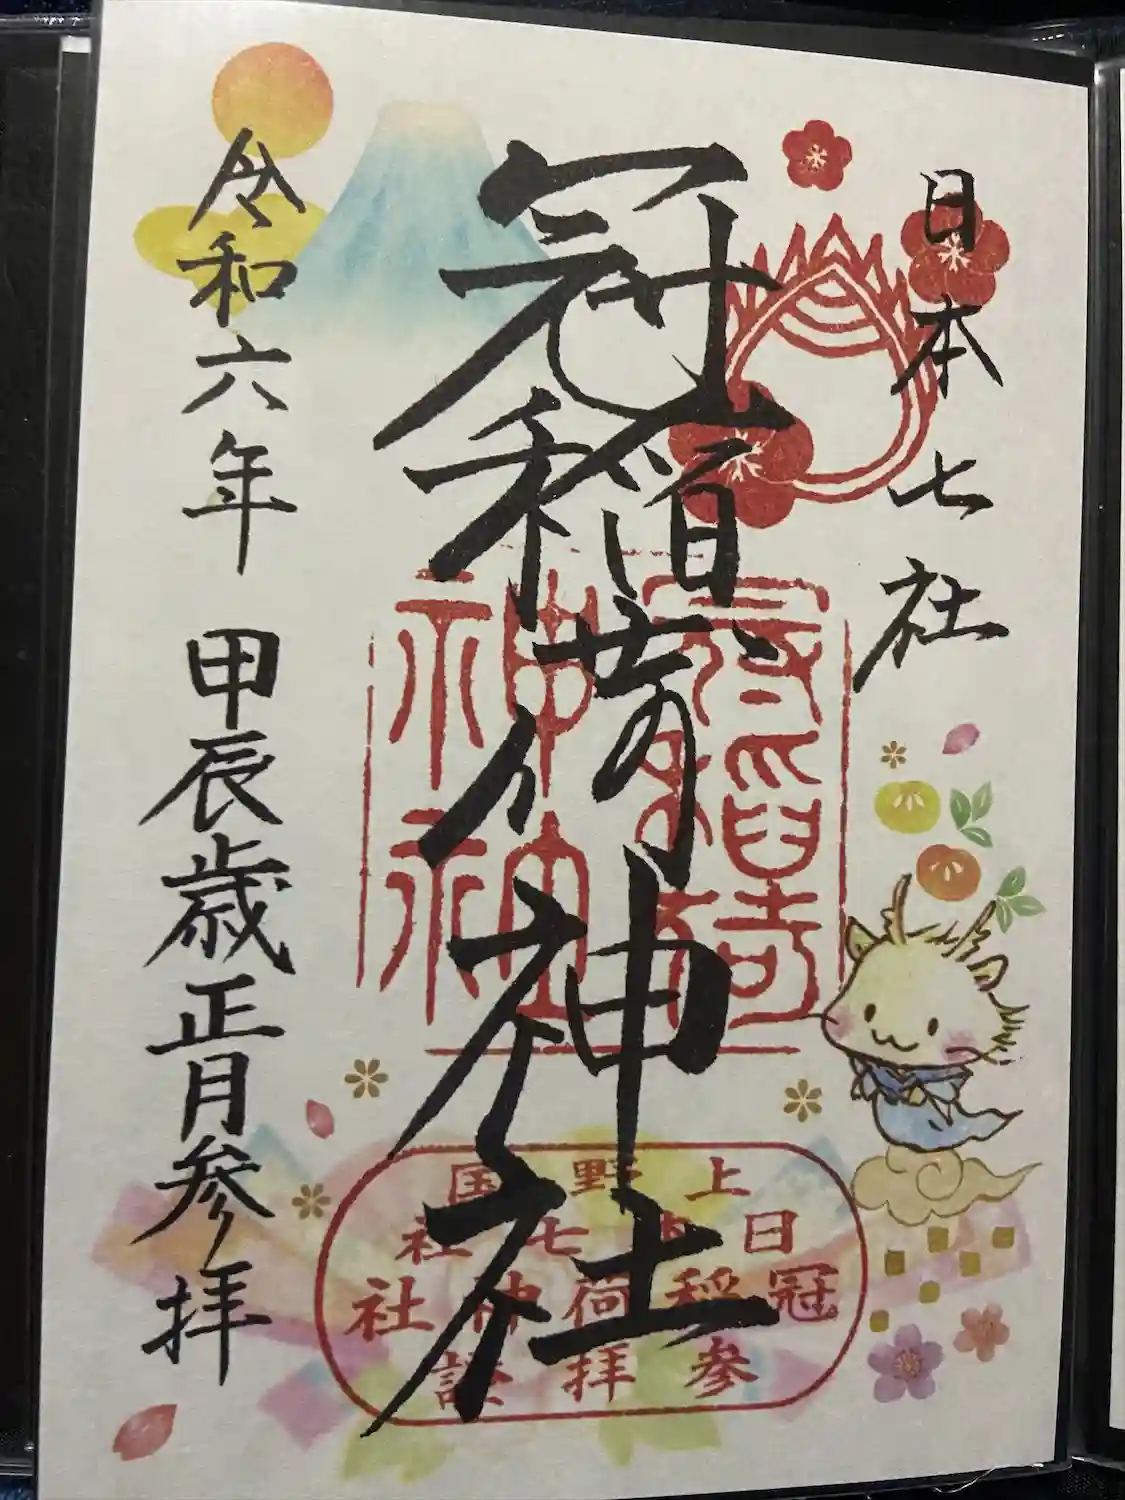 日本七社
冠稲荷神社
令和六年 甲辰歳正月参拝
冠稲荷
神社
神社
上野国
日本七社
冠稲荷神社
参拝證